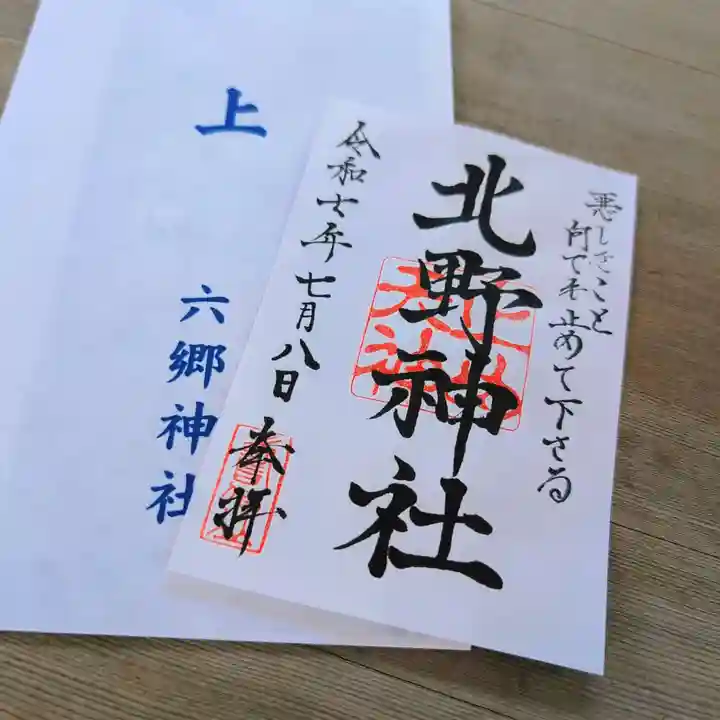 悪しきこと
何でも止めて下さる
北野神社
令和七年七月八日
奉拝
上
六郷神社